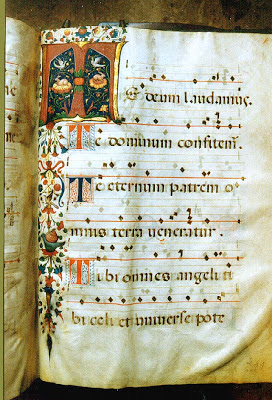 Te deum laudamus.
Te dominum confitem̃.
Te eternum patrem o
mnis terra veneratur.
Tibi omnes angeli ti
bi celi et universe pote